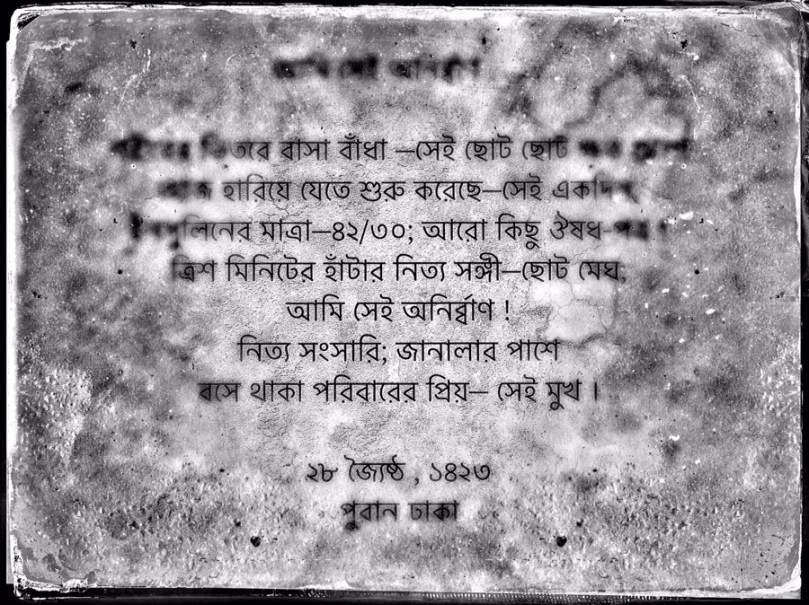 আমি সেই অনির্ব্বাণ
ভিতরে বাসা বাঁধা —সেই ছোট ছোট
হারিয়ে যেতে শুরু করেছে—সেই
মাত্রা—৪২/৩০; আরো কিছু ঔষধ-
ত্রিশ মিনিটের হাঁটার নিত্য সঙ্গী—ছোট মেঘ;
আমি সেই অনির্ব্বাণ !
নিত্য সংসারি; জানালার পাশে
বসে থাকা পরিবারের প্রিয়— সেই মুখ ।
২৮ জ্যৈষ্ঠ , ১৪২৩
পুরান ঢাকা